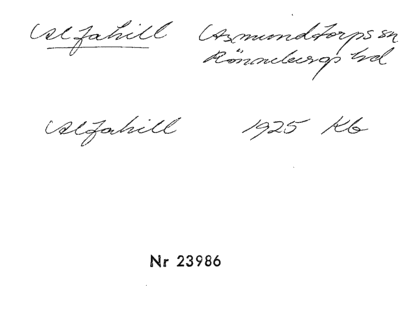 Alfahill Asmundtorps sn
Rönnebergs hd
Alfahill 1925 Kb
Nr 23986